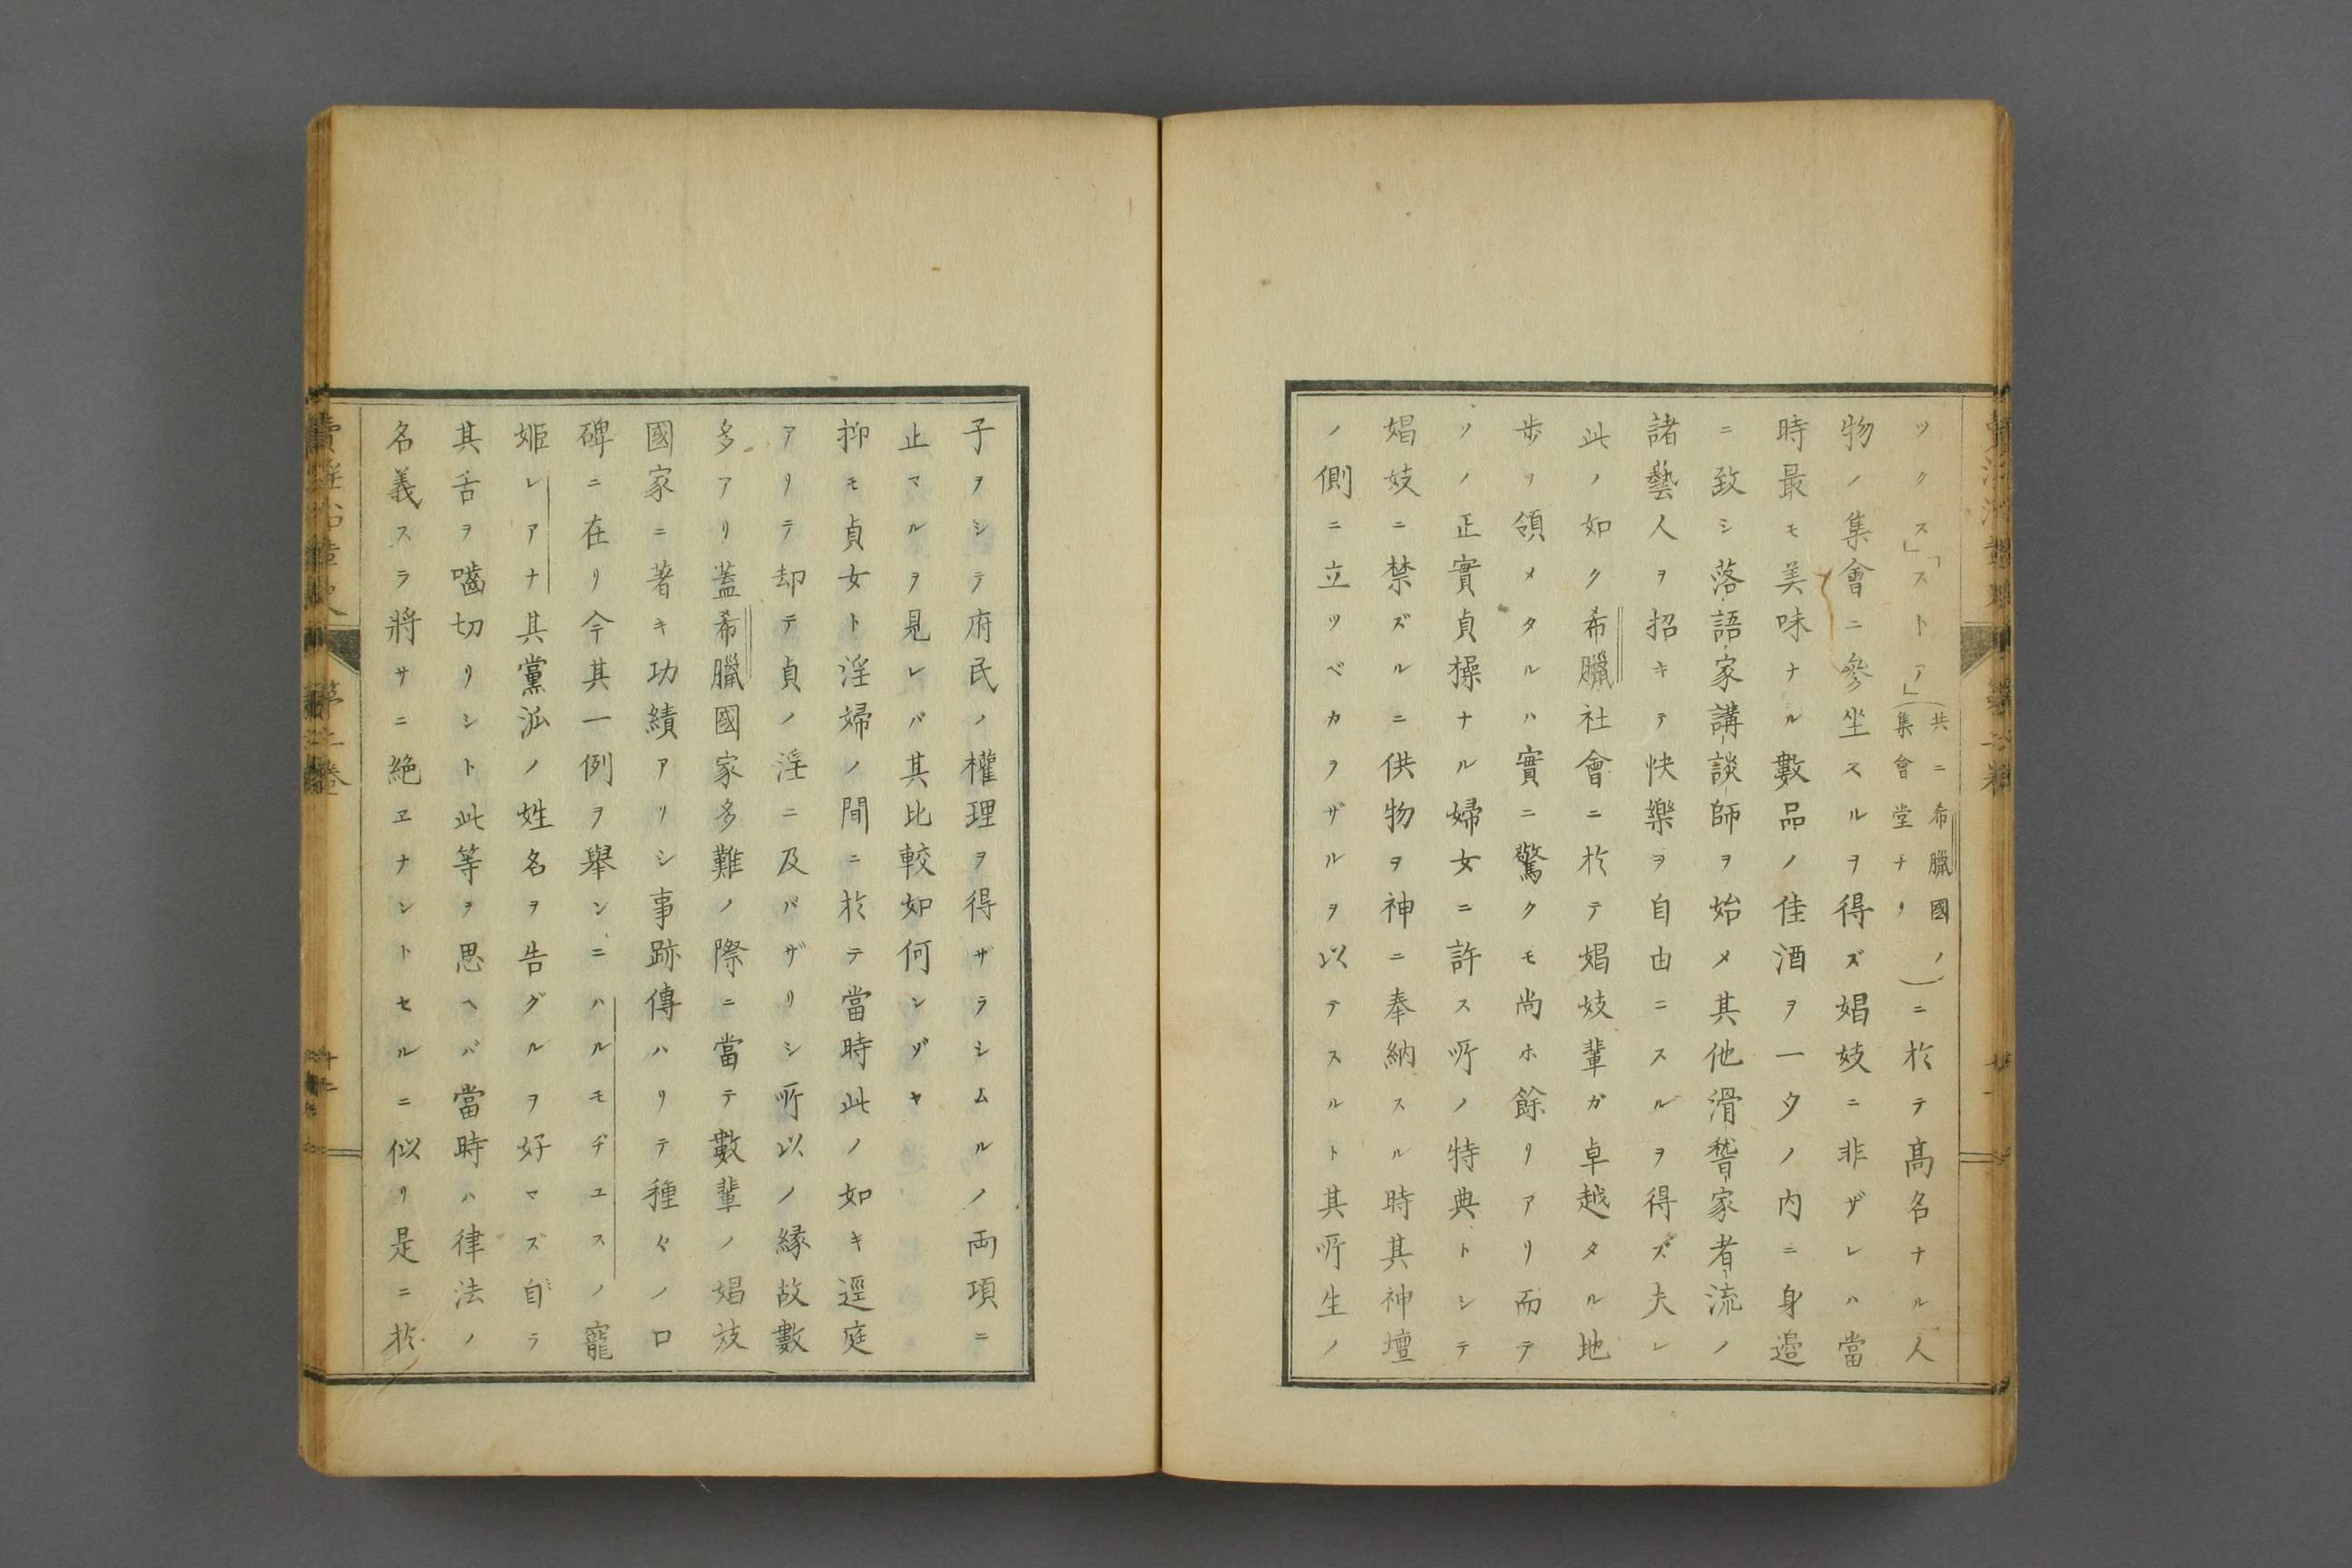 ックス」「ストア」(共ニ希臘國ノ集會堂ナリ)ニ於テ高名ナル人
物ノ集會ニ參坐スルヲ得ズ娼妓ニ非ザレハ當
時最モ美味ナル數品ノ佳酒ヲ一夕ノ内ニ身邉
ニ致シ落語家講談師ヲ始メ其他滑稽家者流ノ
諸藝人ヲ招キテ快樂ヲ自由ニスルヲ得ズ夫レ
此ノ如ク希臘社會ニ於テ娼妓輩ガ卓越タル地
歩ヲ領メタルハ實ニ驚クモ尚ホ餘リアリ而テ
ソノ正實貞操ナル婦女ニ許ス所ノ特典トシテ
娼妓ニ禁ズルニ供物ヲ神ニ奉納スル時其神壇
ノ側ニ立ツベカラザルヲ以テスルト其所生ノ
子ヲシテ府民ノ權理ヲ得ザラシムルノ両項ニ
止マルヲ見レバ其比較如何ンゾヤ
抑モ貞女ト淫婦ノ間ニ於テ當時此ノ如キ逕庭
アリテ却テ貞ノ淫ニ及バザリシ所以ノ縁故數
多アリ蓋希臘國家多難ノ際ニ當テ數輩ノ娼妓
國家ニ著キ功績アリシ事跡傳ハリテ種々ノ口
碑ニ在リ今其一例ヲ舉ンニハルモヂユスノ寵
姫レアナ其黨派ノ姓名ヲ告グルヲ好マズ自ラ
其舌ヲ噛切リシト此等ヲ思ヘバ當時ハ律法ノ
名義スラ將サニ絶ヱナントセルニ似リ是ニ於
賣淫沿革史
第一卷